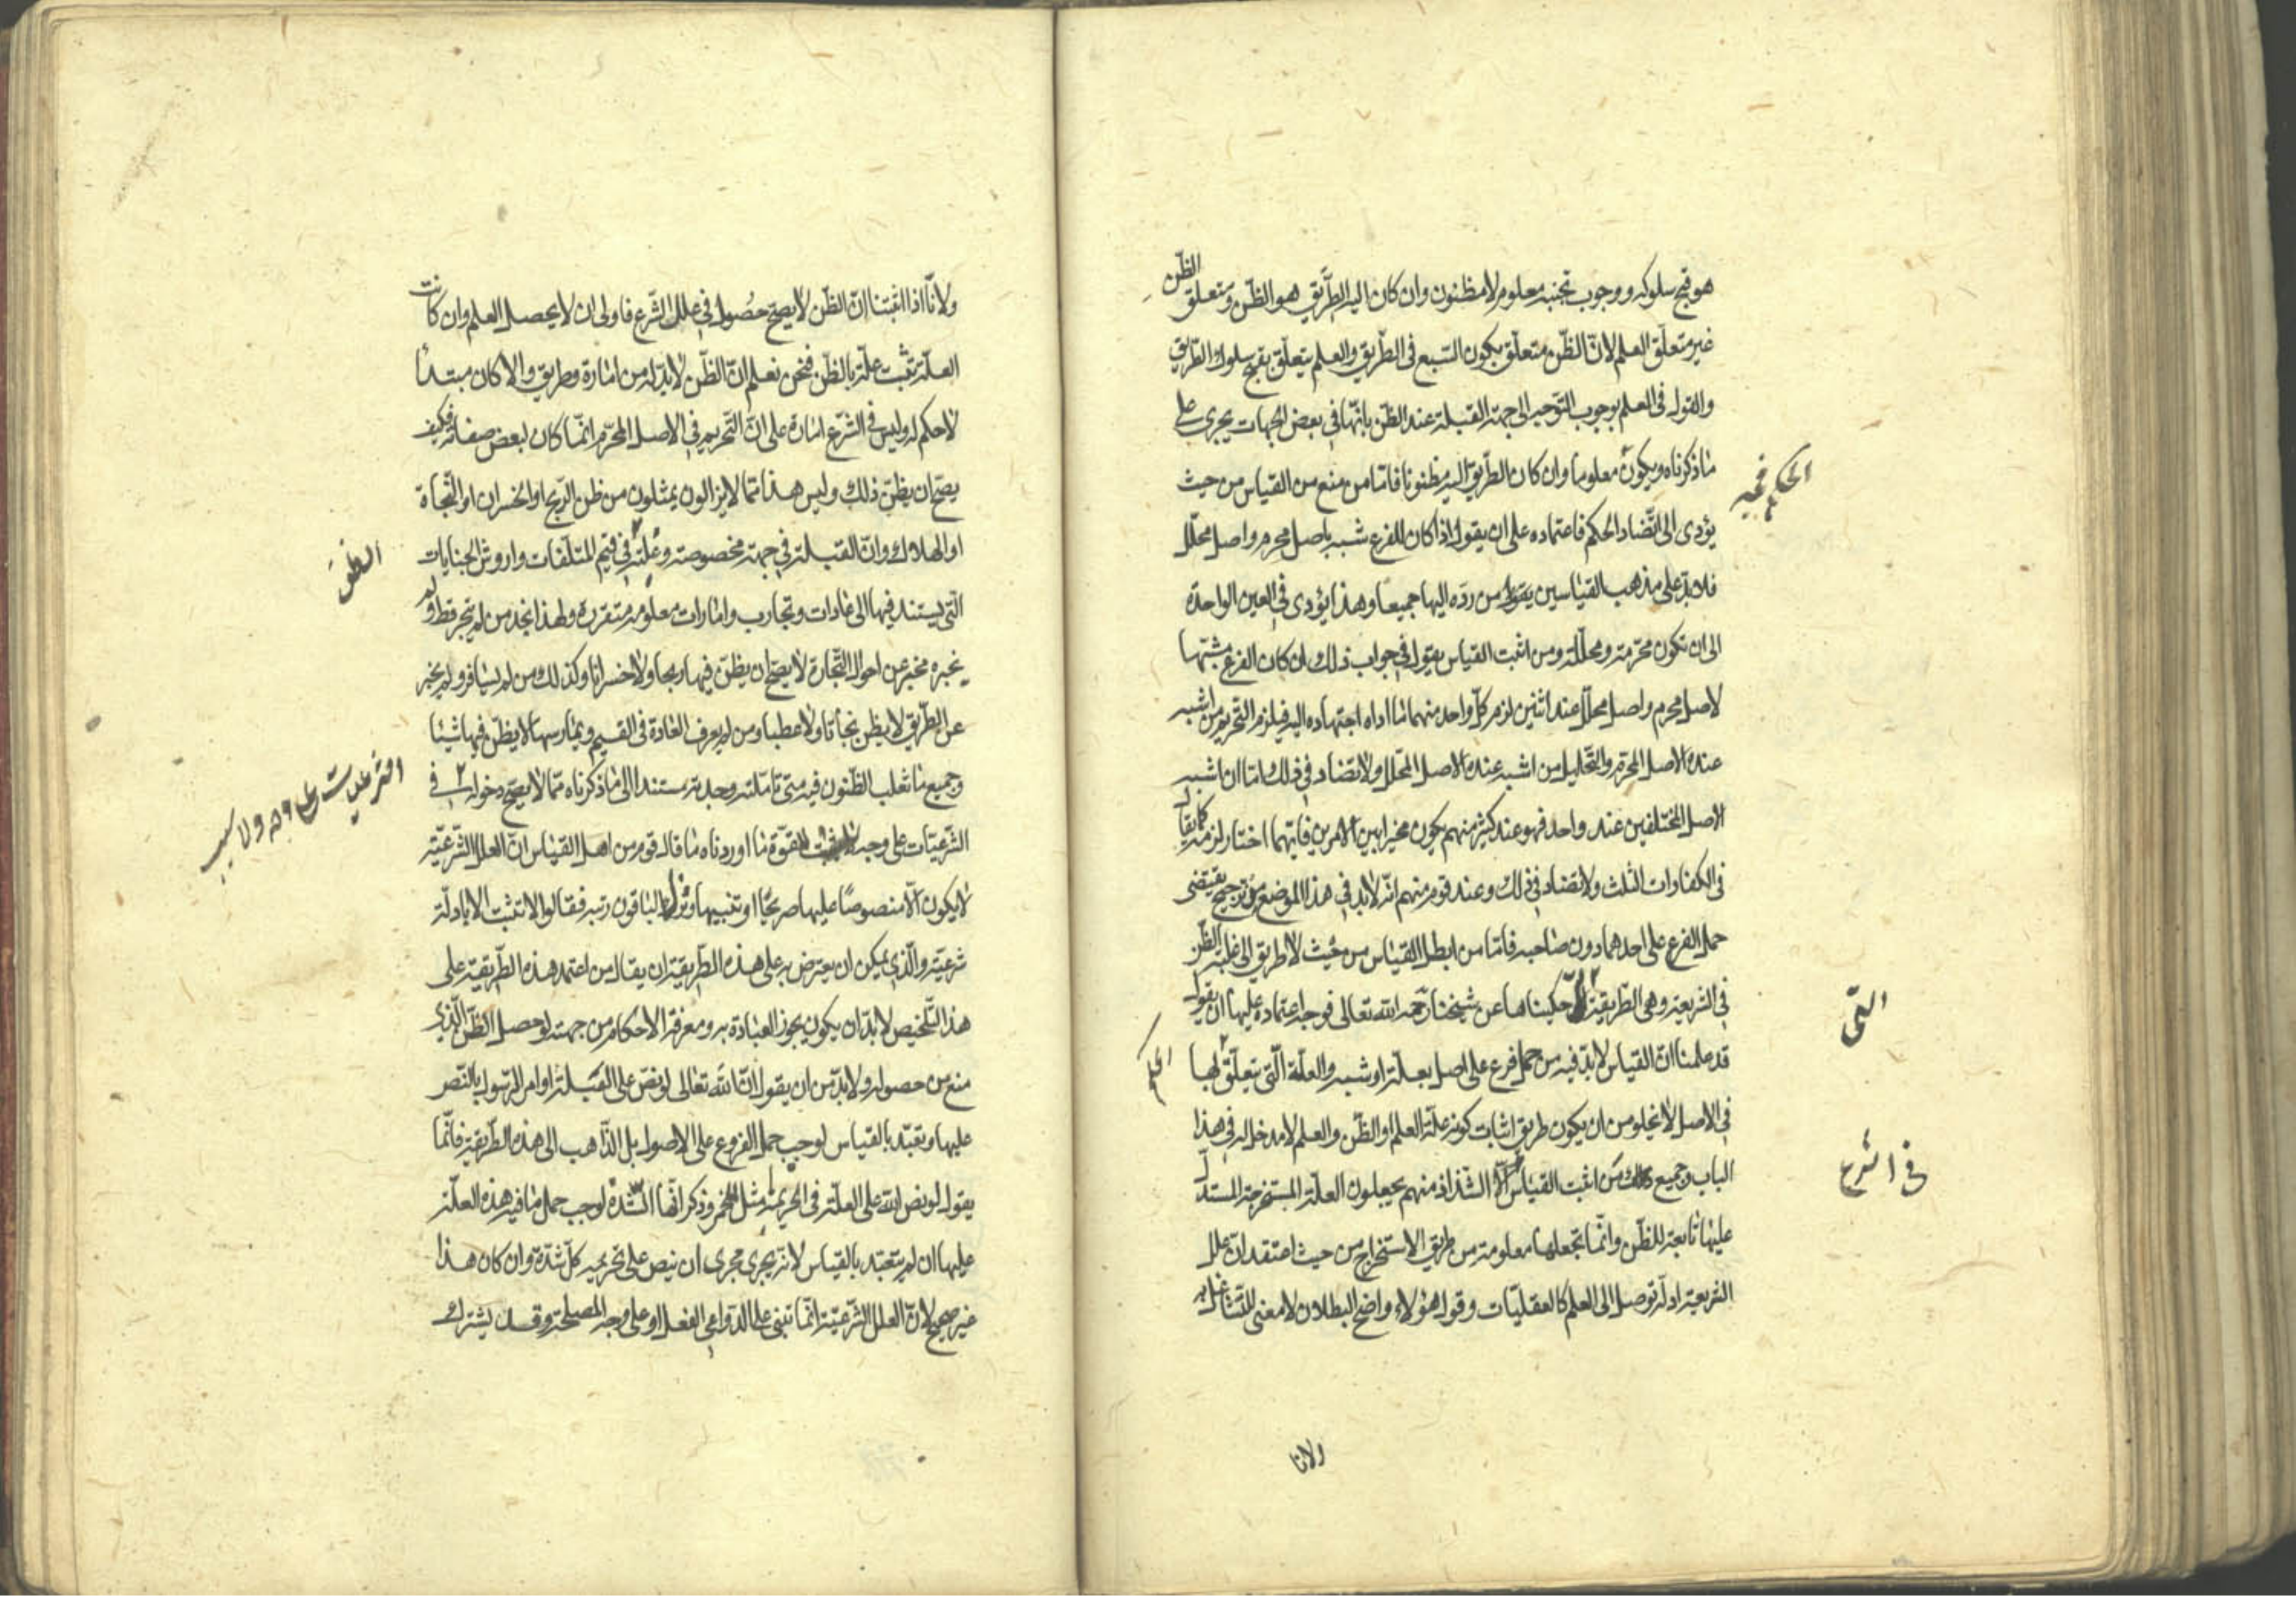 هو قبح سلوكه ووجوب تجنبه معلوم لا مظنون وان كان اليه الطريق هو الظن ومتعلق الظن
غير متعلق العلم لان الظن متعلق بكون السبع فى الطريق والعلم يتعلق بقبح سلوك الطريق
والقول فى العلم بوجوب التوجه الى جهة القبلة عند الظن بانها فى بعض الجهات يجرى على
ما ذكرناه ويكون معلوما وان كان الطريق اليه مظنونا فاما من منع من القياس من حيث
الحكم فيه
يؤدى الى اتضاد الحكم فاعتماده على ان يقول اذا كان للفرع شبه باصل محرم واصل محلل
فلا بد على مذهب القياسين يقول من رده اليها جميعا وهذا يؤدى فى العين الواحدة
الى ان تكون محرمة ومحللة ومن اثبت القياس يقول فى جواب ذلك ان كان الفرع مشبها
لاصل محرم واصل محلل عند اثنين لزم كل واحد منهما ما اداه اجتهاده اليه فيلزم التحريم من اشبه
عنده الاصل المحرم والتحليل من اشبه عنده الاصل المحلل ولا تضاد فى ذلك اما ان اشبه
الاصل المختلفين عند واحد فهو عند كثير منهم يكون مخيرا بين الامرين فايهما اختار لزمه كما يقال
فى الكفارات الثلث ولا تضاد فى ذلك وعند قوم منهم انه لابد فى هذا الموضع من ترجيح يقتضى
حمل الفرع على احدهما دون صاحبه فاما من ابطل القياس من حيث لا طريق الى غلبة الظن
فى الشريعة وهى الطريقة حكيناها عن شيخنا رحمه الله تعالى فوجه اعتماده عليها ان يقول
التى
قد علمنا ان القياس لابد فيه من حمل فرع على اصل بعلة او شبه والعلة التى يتعلق لها
الحكم
فى الاصل لا يخلو من ان يكون طريق اثبات كونه علة العلم او الظن والعلم لا مدخل له فى هذا
الباب وجميع من اثبت القياس الا الشذاذ منهم يجعلون العلة المستخرجة المستدل
فى الشرع
عليها تابعة للظن وانما تجعلها معلومة من طريق الاستخراج من حيث اعتقد ان علل
الشريعة ادلة توصل الى العلم كالعقليات وقول هؤلاء واضح البطلان لا معنى للتشاغل به
ولانا
ولانا اذا اثبتنا ان الظن لا يصح حصوله فى علل الشرع فاولى ان لا يحصل العلم وان كانت
العلة تثبت علة بالظن فنحن نعلم ان الظن لابد له من امارة وطريق والا كان مبتدأ
لا حكم له وليس فى الشرع امارة على ان التحريم فى الاصل المحرم انما كان لبعض صفاته فكيف
يصح ان يظن ذلك وليس هذا مما لا يزالون يمثلون من ظن الربح او الخسران او النجاة
او الهلاك وان القبلة فى جهة مخصوصة وعلته فى قيم المتلفات واروش الجنايات
الظن
التى يستند فيها الى عادات وتجارب وامارات معلومة متقررة ولهذا نجد من لم يتجر قط ولم
يخبره مخبر عن احوال التجارة لا يصح ان يظن فيها ربحا ولا خسرانا وكذلك من لم يسافر ولم يخبر
عن الطريق لا يظن نجاتا ولا عطبا ومن لم يعرف العادة فى القسيم ويمارسها لا يظن فيها شيئا
وجميع ما تغلب الظنون فيه متى تاملته وجدته مستندا الى ما ذكرناه مما لا يصح دخوله فى
الشرعيات على وجه
الشرعيات على وجه ولا سبب
لقوة ما اوردناه ما قال قوم من اهل القياس ان العلل الشرعية
لا يكون الا منصوصا عليها صريحا او تنبيها ونزل الباقون رتبة فقالوا لا تثبت الا بادلة
شرعية والذى يمكن ان يعترض به على هذه الطريقة ان يقال من اعتمد هذه الطريقة على
هذا التلخيص لابد ان يكون يجوز العبادة به ومعرفة الاحكام من جهته لو حصل الظن الذى
منع من حصوله ولابد من ان يقول ان الله تعالى لو نص على القبلة او امر الرسول بالنص
عليها وتعبد بالقياس لوجب حمل الفروع على الاصول بل الذاهب الى هذه الطريقة فانما
يقول لو نص الله على العلة فى الحريم مثل الخمر وذكر انها الشدة لوجب حمل ما فيه هذه العلة
عليها ان لم يتعبد بالقياس لانه يجرى مجرى ان ينص على تحريم كل شدة وان كان هذا
غير صحيح لان العلل الشرعية انما تبنى على الدواعى الفعل او على وجه المصلحة وقد يشترك